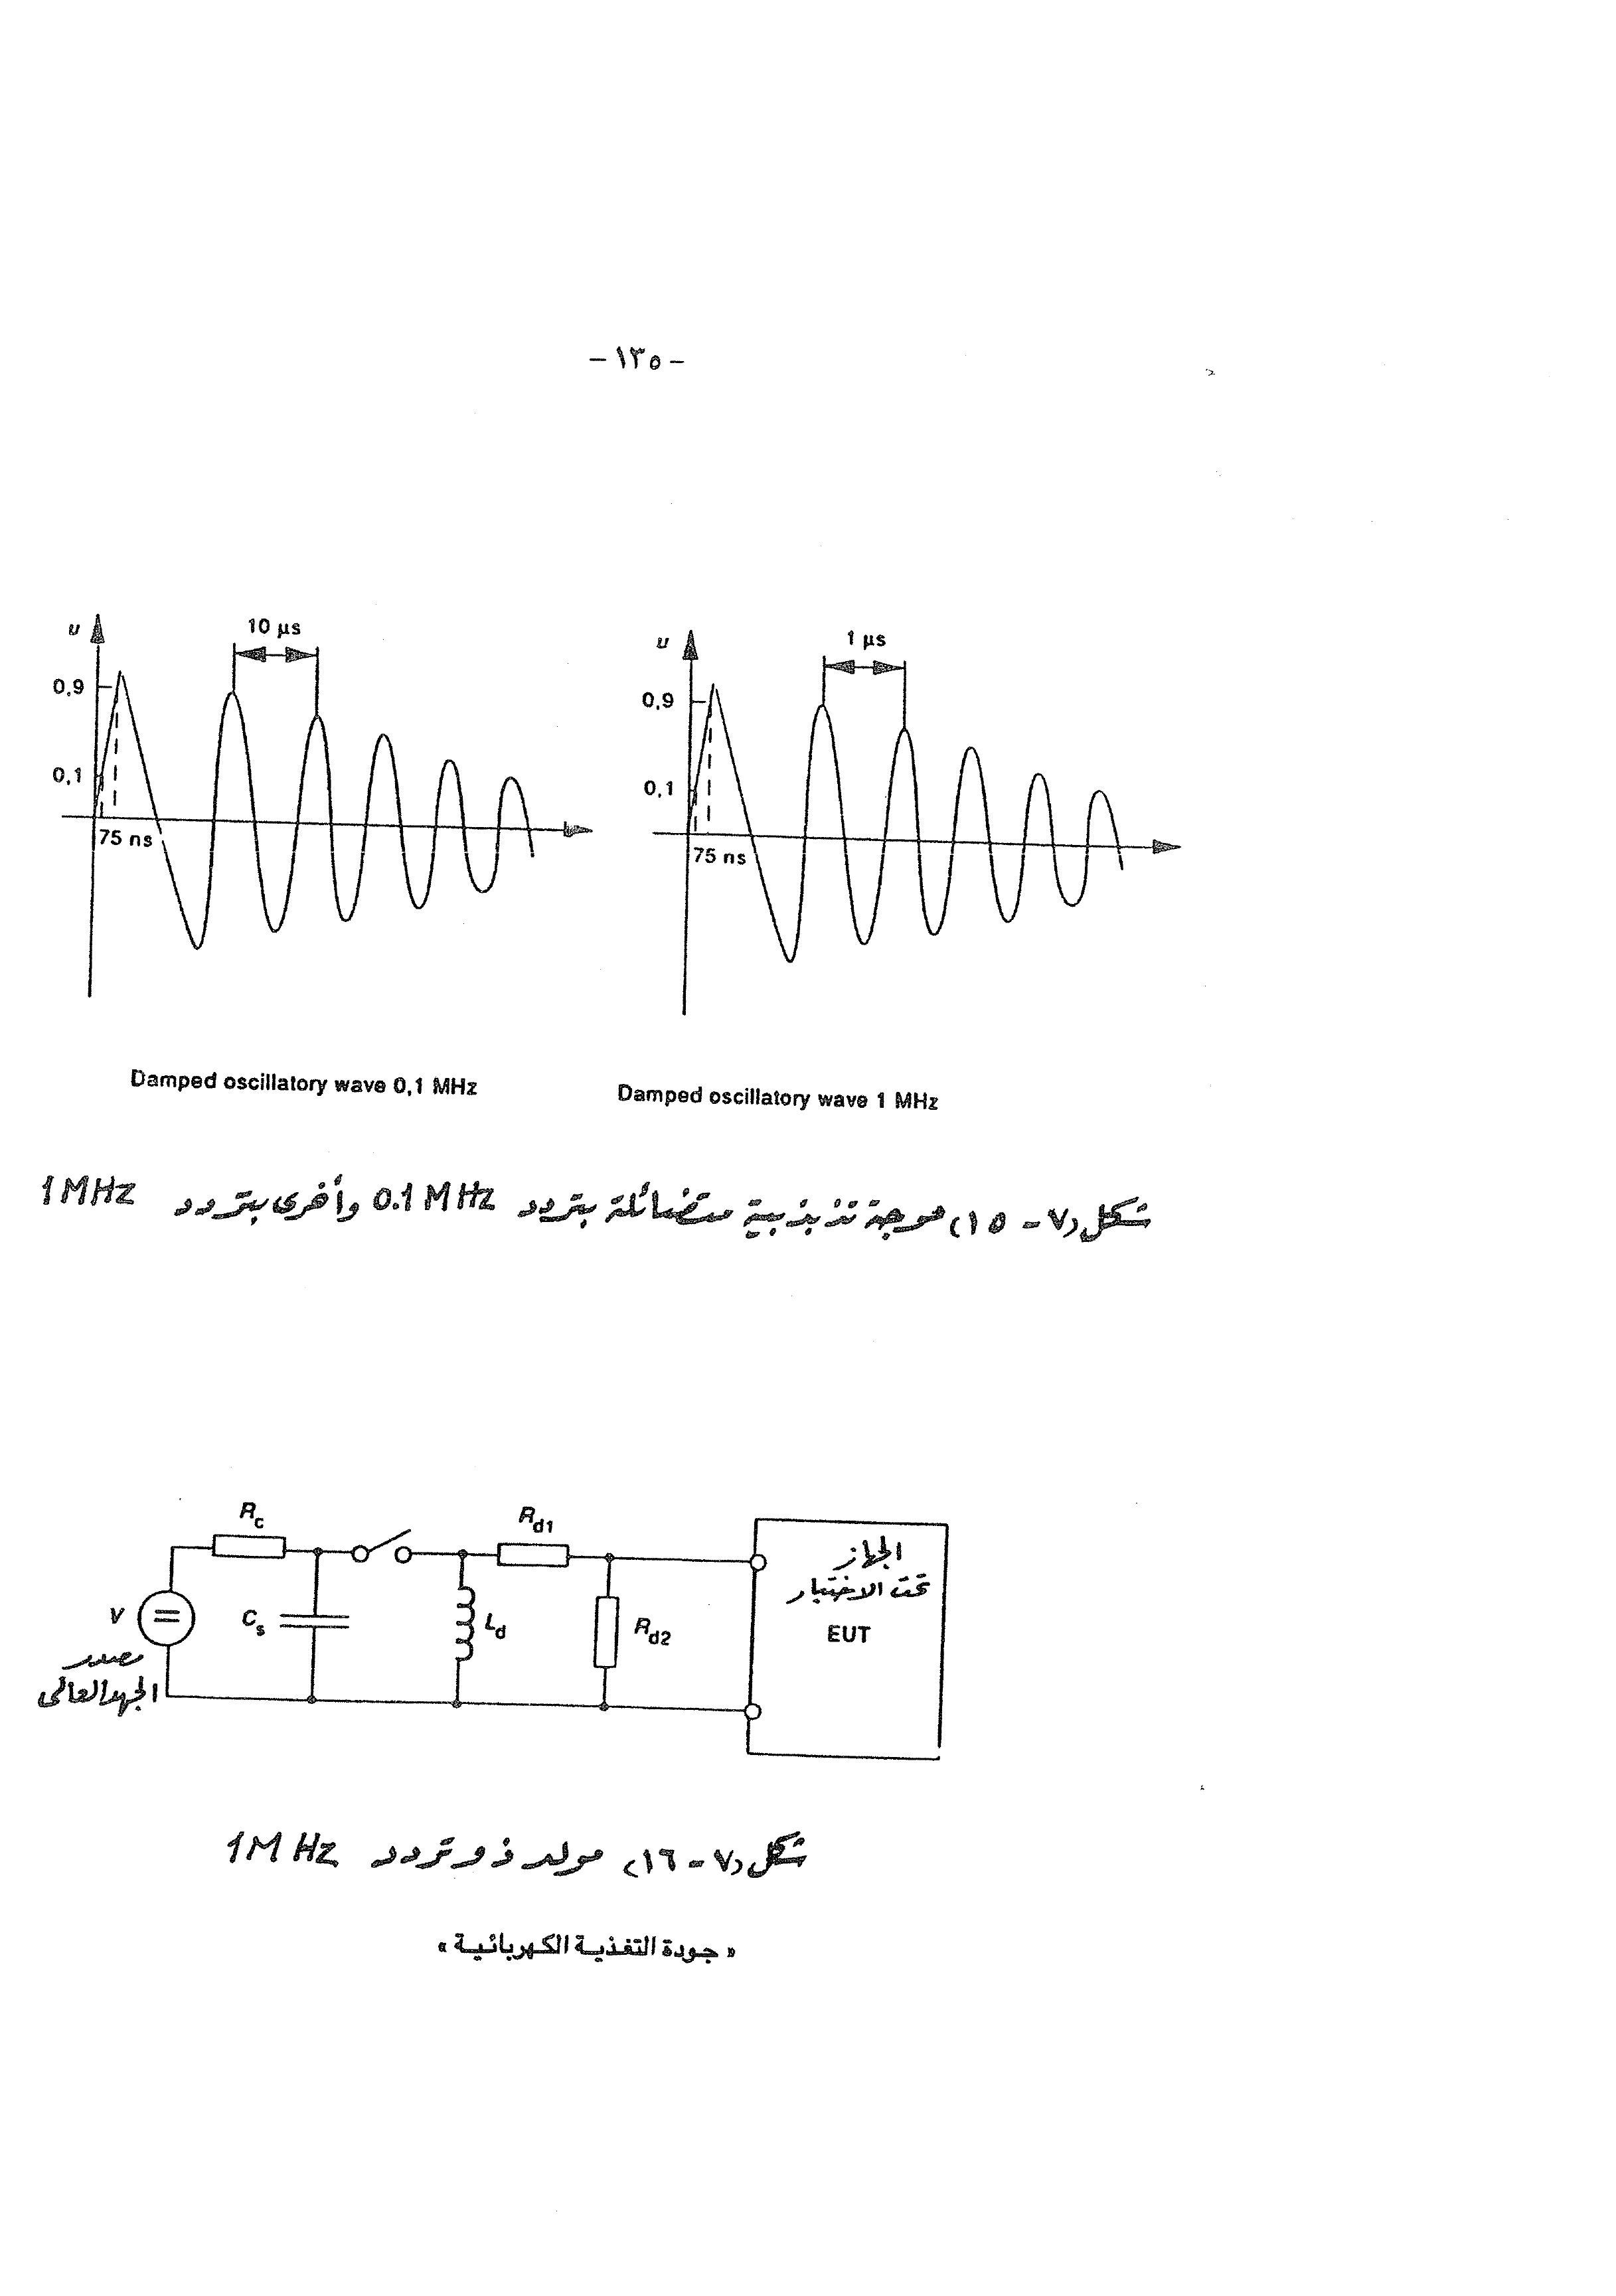 - ١٣٥ -
u
10 µs
0,9
0,1
75 ns
Damped oscillatory wave 0,1 MHz
u
1 µs
0,9
0,1
75 ns
Damped oscillatory wave 1 MHz
شكل (٧ - ١٥) موجة تذبذبية متضائلة بتردد 0.1 MHz وأخرى بتردد 1 MHz
Rc
Rd1
V
Cs
Ld
Rd2
مصدر
الجهد العالى
الجهاز
تحت الاختبار
EUT
شكل (٧ - ١٦) مولد ذو تردد 1 MHz
« جودة التغذية الكهربائية »